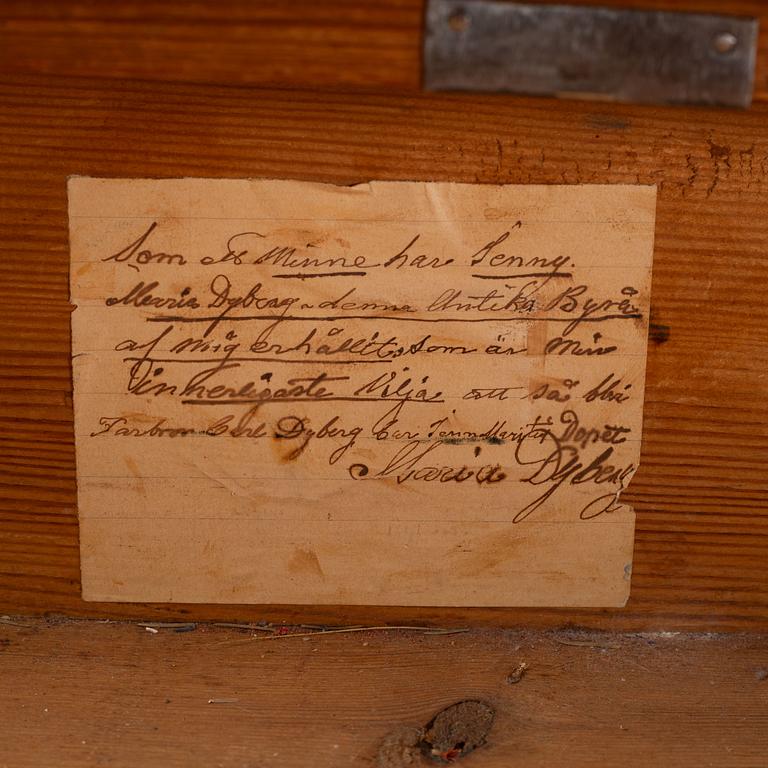 Som Ett Minne har Jenny.
Maria Dyberg denna Antika Byrå
af mig erhållit, som är min
innerligaste Vilja att så blir
Farbror Carl Dyberg bar Jenny Maria till Dopet
Maria Dyberg